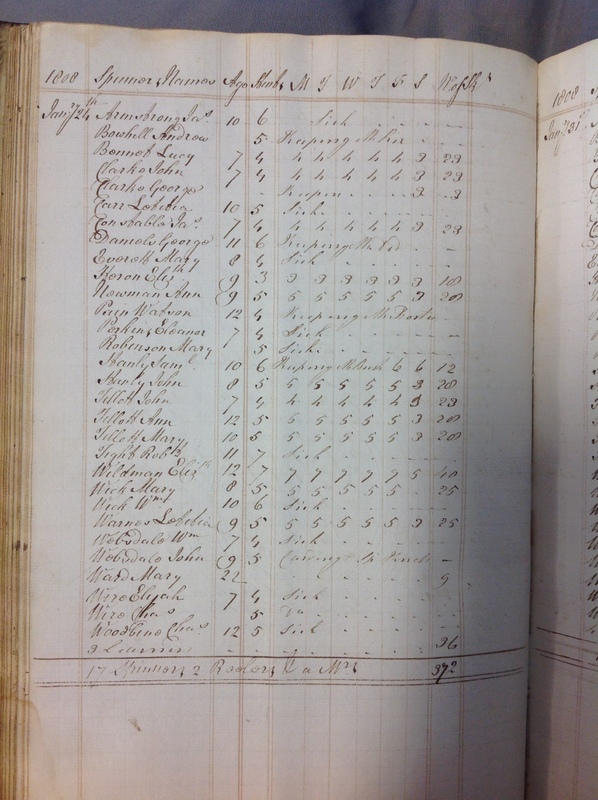 1808 Spinners Names Age Stint M T W T F S
Jany 24th Armstrong Jas 10 6 Sick
Bowhill Andrew 5 Keeping
Bennet Lucy 7 4 4 4 4 4 4 3 23
Clarke John 7 4 4 4 4 4 4 3 23
Clarke George 3 3
Carr Letitia 10 5 Sick
Constable Jas 7 4 4 4 4 4 4 3 23
Daniels George 11 6 Keeping
Everett Mary 8 4 Sick
Heron Elizth 9 3 3 3 3 3 3 3 18
Newman Ann 9 5 5 5 5 5 5 3 28
Pain Watson 12 4 Keeping
Perkins Eleanor 7 4 Sick
Robinson Mary 5 Sick
Stanly Saml 10 6 Keeping 6 6 12
Stanly John 8 5 5 5 5 5 5 3 28
Tillott John 7 4 4 4 4 4 4 3 23
Tillott Ann 12 5 5 5 5 5 5 3 28
Tillott Mary 10 5 5 5 5 5 5 3 28
Tight Robt 11 7 Sick
Wildman Elizth 12 7 7 7 7 7 7 5 40
Wick Mary 8 5 5 5 5 5 5 25
Wick Wm 10 6 Sick
Warnes Letitia 9 5 5 5 5 5 5 3 25
Websdale Wm 7 4 Sick
Websdale John 9 5
Ward Mary 22 9
Wire Elijah 7 4 Sick
Wire Chas 5 Do
Woodbine Chas 12 5 Sick
3 Learners 36
17 Spinners 2 Reelers & a Mrs 372
1808
Jany 31st